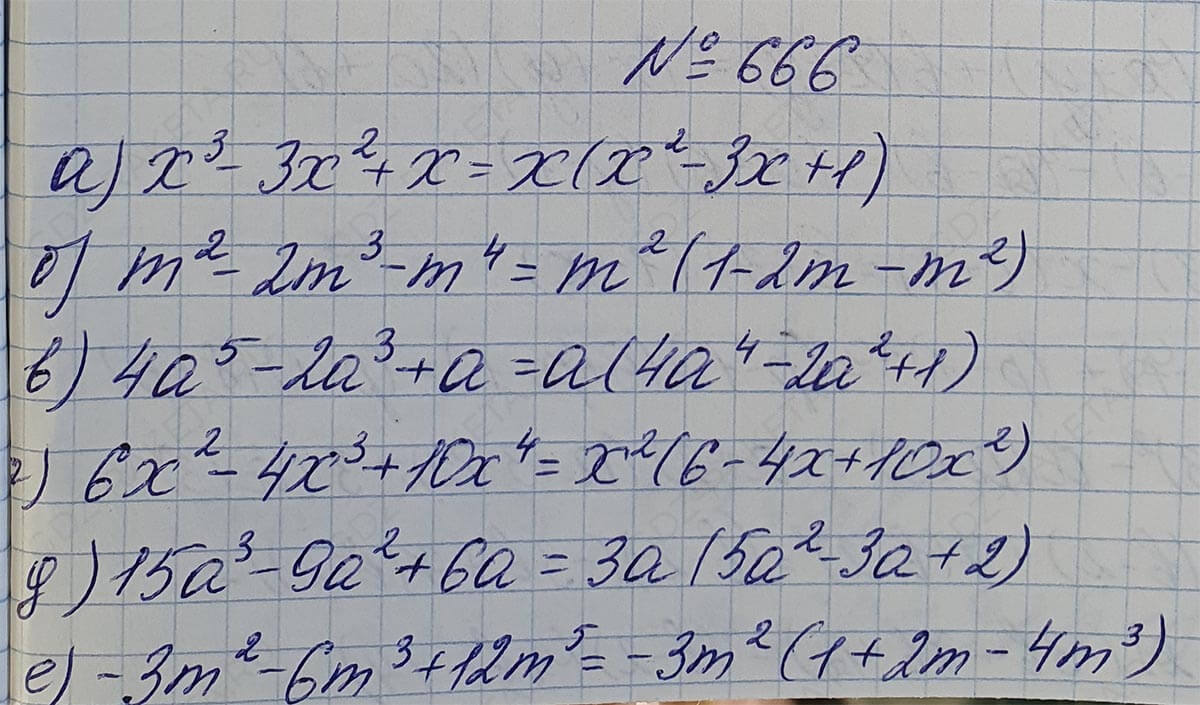 № 666
а) x³ - 3x² + x = x(x² - 3x + 1)
б) m² - 2m³ - m⁴ = m²(1 - 2m - m²)
в) 4a⁵ - 2a³ + a = a(4a⁴ - 2a² + 1)
г) 6x² - 4x³ + 10x⁴ = x²(6 - 4x + 10x²)
д) 15a³ - 9a² + 6a = 3a(5a² - 3a + 2)
е) -3m² - 6m³ + 12m⁵ = -3m²(1 + 2m - 4m³)